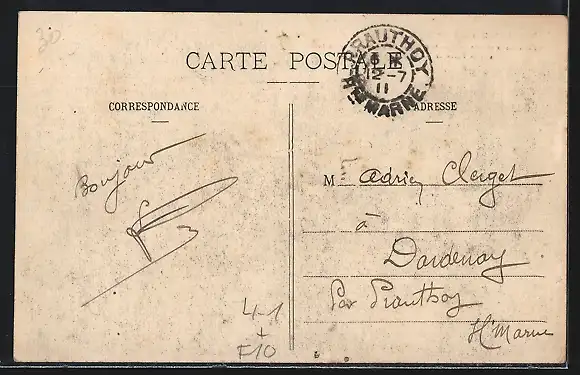 30
CARTE POSTALE
PRAUTHOY
12-7
11
Hte MARNE
CORRESPONDANCE
ADRESSE
Bonjour
M Adrien Clerget
à
Dardenay
Par Prauthoy
Hte Marne
4-1
+
F10